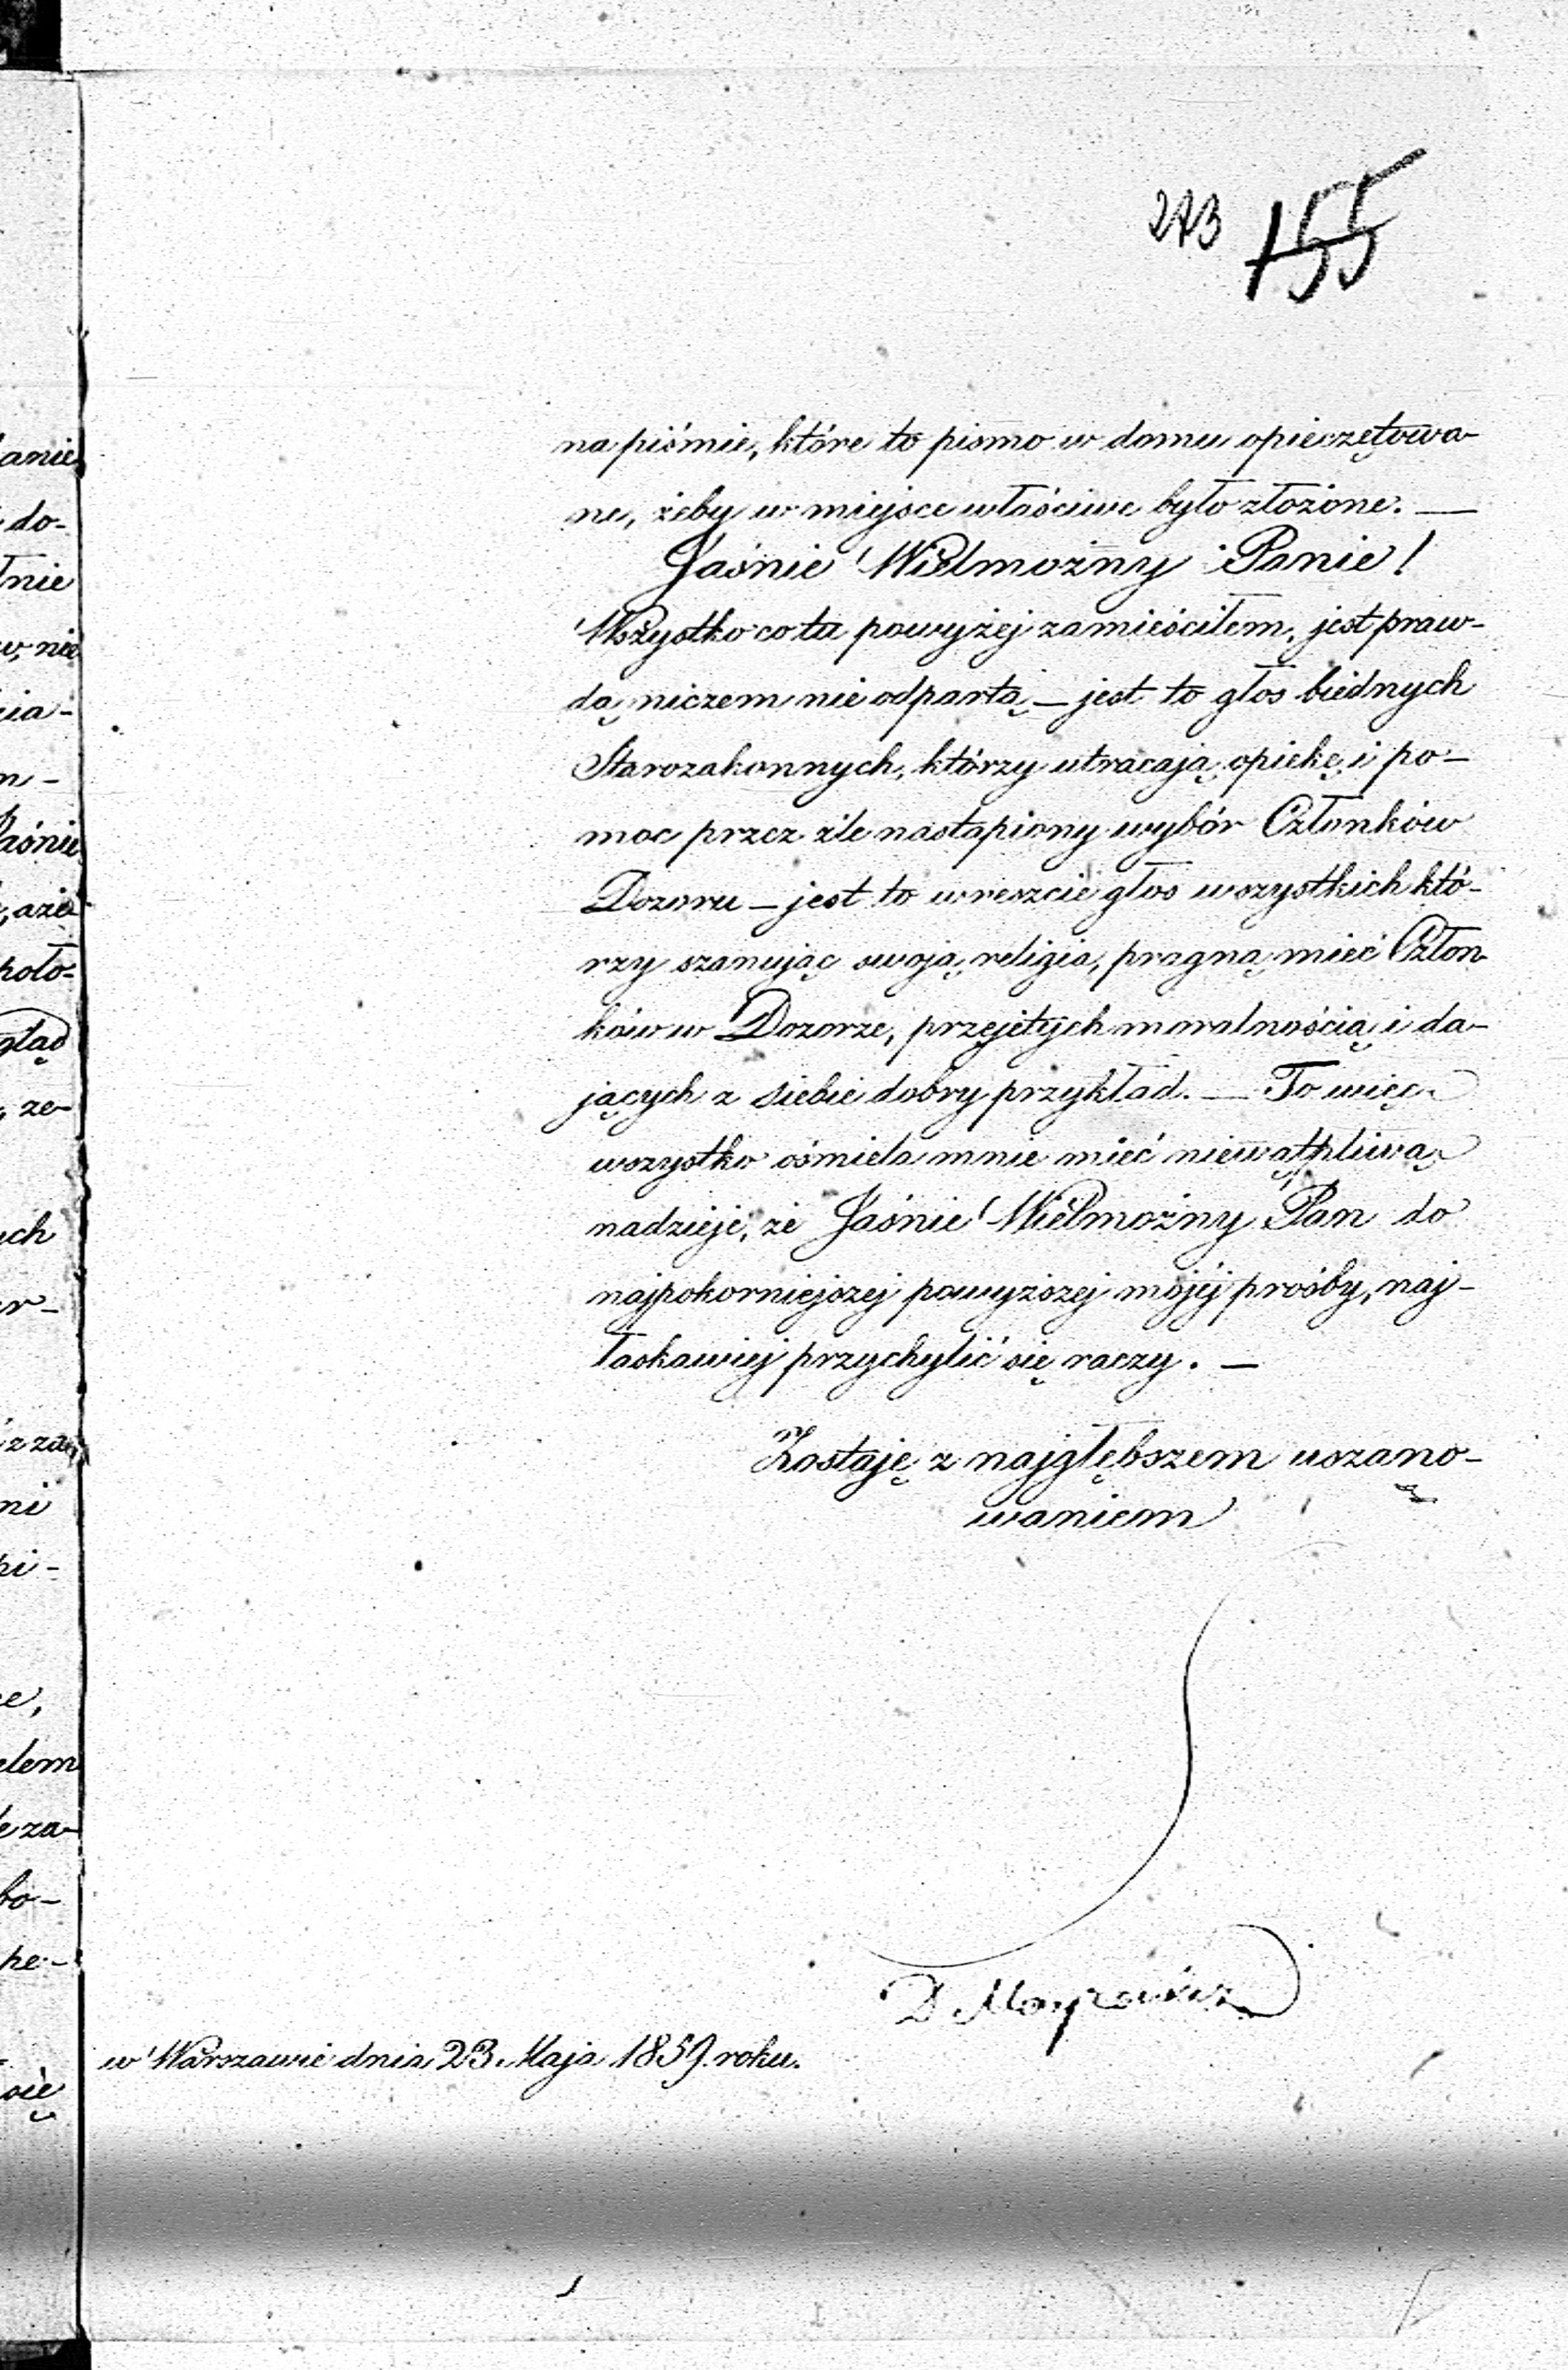 273 155
na piśmie, które to pismo w domu opieczętowa-
ne, żeby w miejsce właściwe było złożone. —
Jaśnie Wielmożny Panie!
Wszystko co tu powyżej zamieściłem, jest praw-
dą niczem nie odpartą — jest to głos biednych
Starozakonnych, którzy utracają opiekę i po-
moc przez źle nastąpiony wybór Członków
Dozoru — jest to wreszcie głos wszystkich któ-
rzy szanując swoją religią, pragną mieć Człon-
ków w Dozorze, przejętych moralnością i da-
jących z siebie dobry przykład. — To więc
wszystko ośmiela mnie mieć niewątpliwą
nadzieję, że Jaśnie Wielmożny Pan do
najpokorniejszej powyższej mojéj prośby, naj-
łaskawiej przychylić się raczy. —
Zostaję z najgłębszem uszano-
waniem
D.
w Warszawie dnia 23. Maja 1859. roku.
anie
do-
łnie
w, nie
zia-
m-
Jaśnie
, aże
poło-
gląd
, ze-
ych
er-
z za
ni
pi-
ce,
elem
le za-
bo-
pe-
się